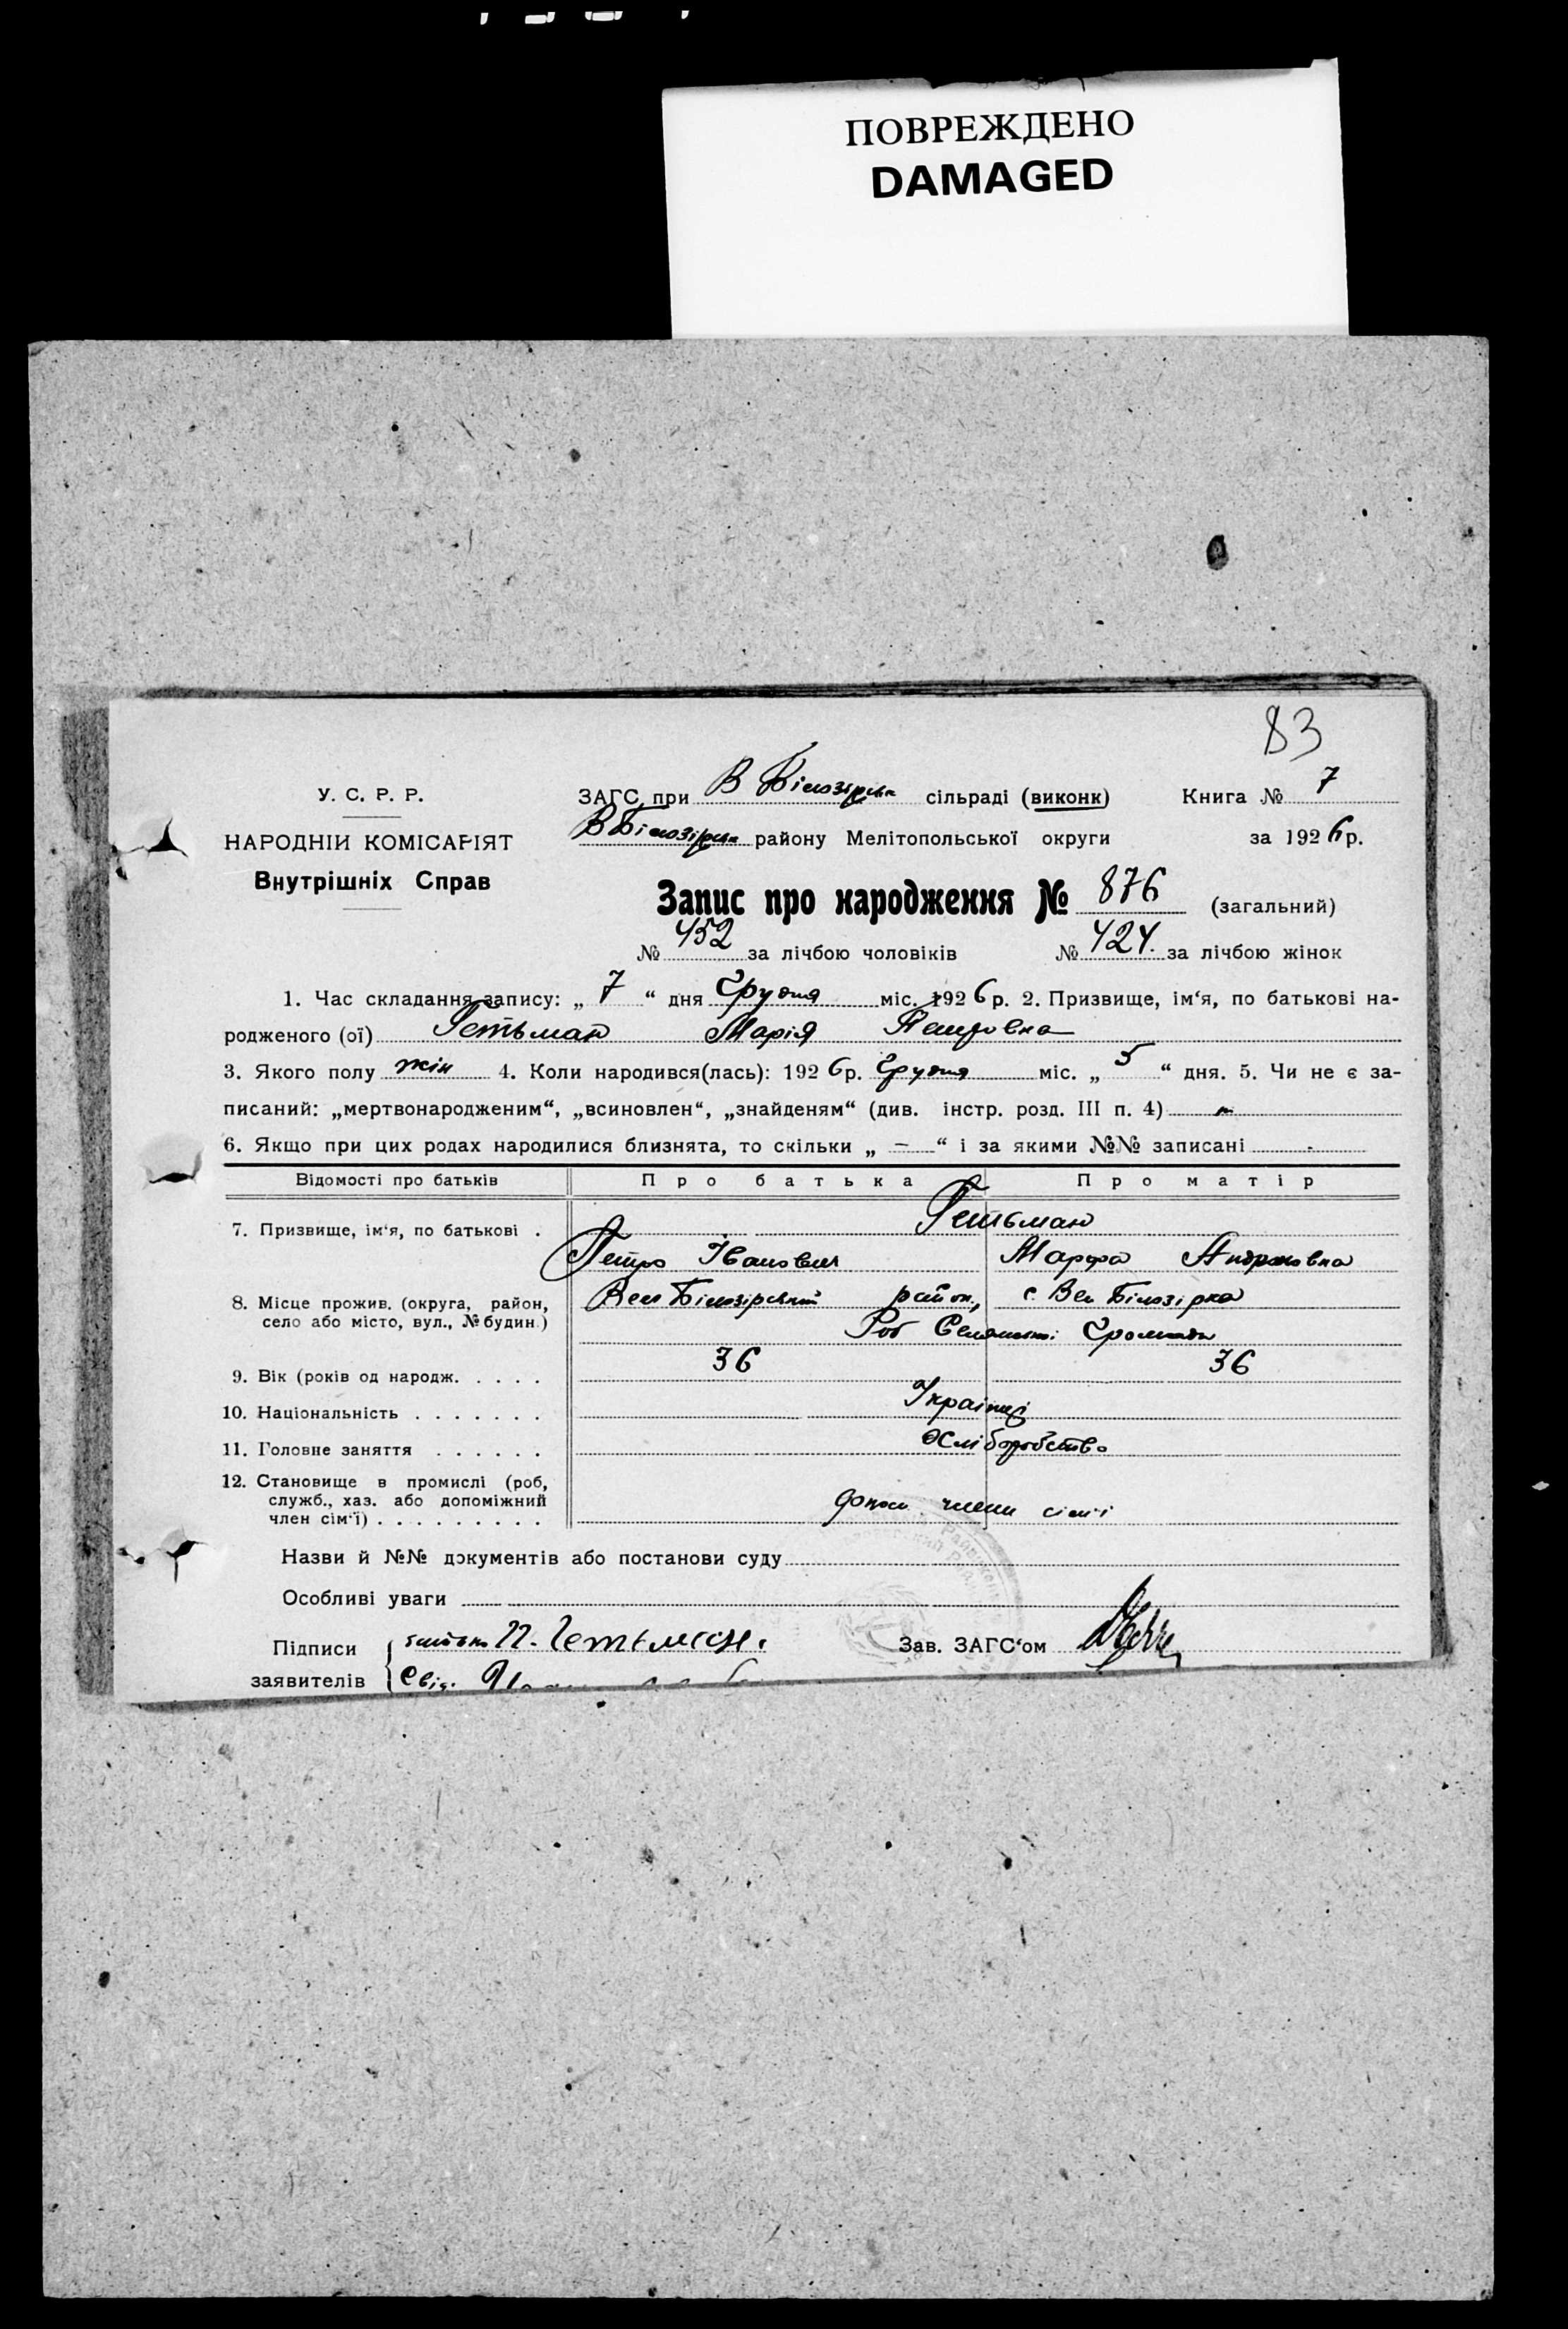 ПОВРЕЖДЕНО
DAMAGED
83
У. С. Р. Р.
НАРОДНІЙ КОМІСАРІЯТ
Внутрішніх Справ
ЗАГС при В Білозірськ сільраді (виконк) Книга № 7
В Білозірськ району Мелітопольської округи за 1926 р.
Запис про народження № 876 (загальний)
№ 452 за лічбою чоловіків № 424. за лічбою жінок
1. Час складання запису: „ 7 “ дня Грудня міс. 1926 р. 2. Призвище, ім‘я, по батькові на-
родженого (ої) Гетьман Марія Петровна
3. Якого полу жін 4. Коли народився(лась): 1926 р. Грудня міс. „ 5 “ дня. 5. Чи не є за-
писаний: „мертвонародженим“, „всиновлен“, „знайденям“ (див. інстр. розд. III п. 4) -
6. Якщо при цих родах народилися близнята, то скільки „ — “ і за якими №№ записані -
Відомості про батьків Про батька Про матір
7. Призвище, ім‘я, по батькові . Гетьман
Петро Іванович Марфа Андроновна
8. Місце прожив. (округа, район, Вел Білозірський район, с. Вел Білозірка
село або місто, вул., № будин.) Громади
9. Вік (років од народж. . . . . 36 36
10. Національність . . . . . . . Українці
11. Головне заняття . . . . . . Хліборобство
12. Становище в промислі (роб,
служб., хаз. або допоміжний члени сім‘ї
член сім‘ї) . . . . . . . . .
Назви й №№ документів або постанови суду
Особливі уваги
Підписи батько П. Гетьман. Зав. ЗАГС‘ом
заявителів Свід.